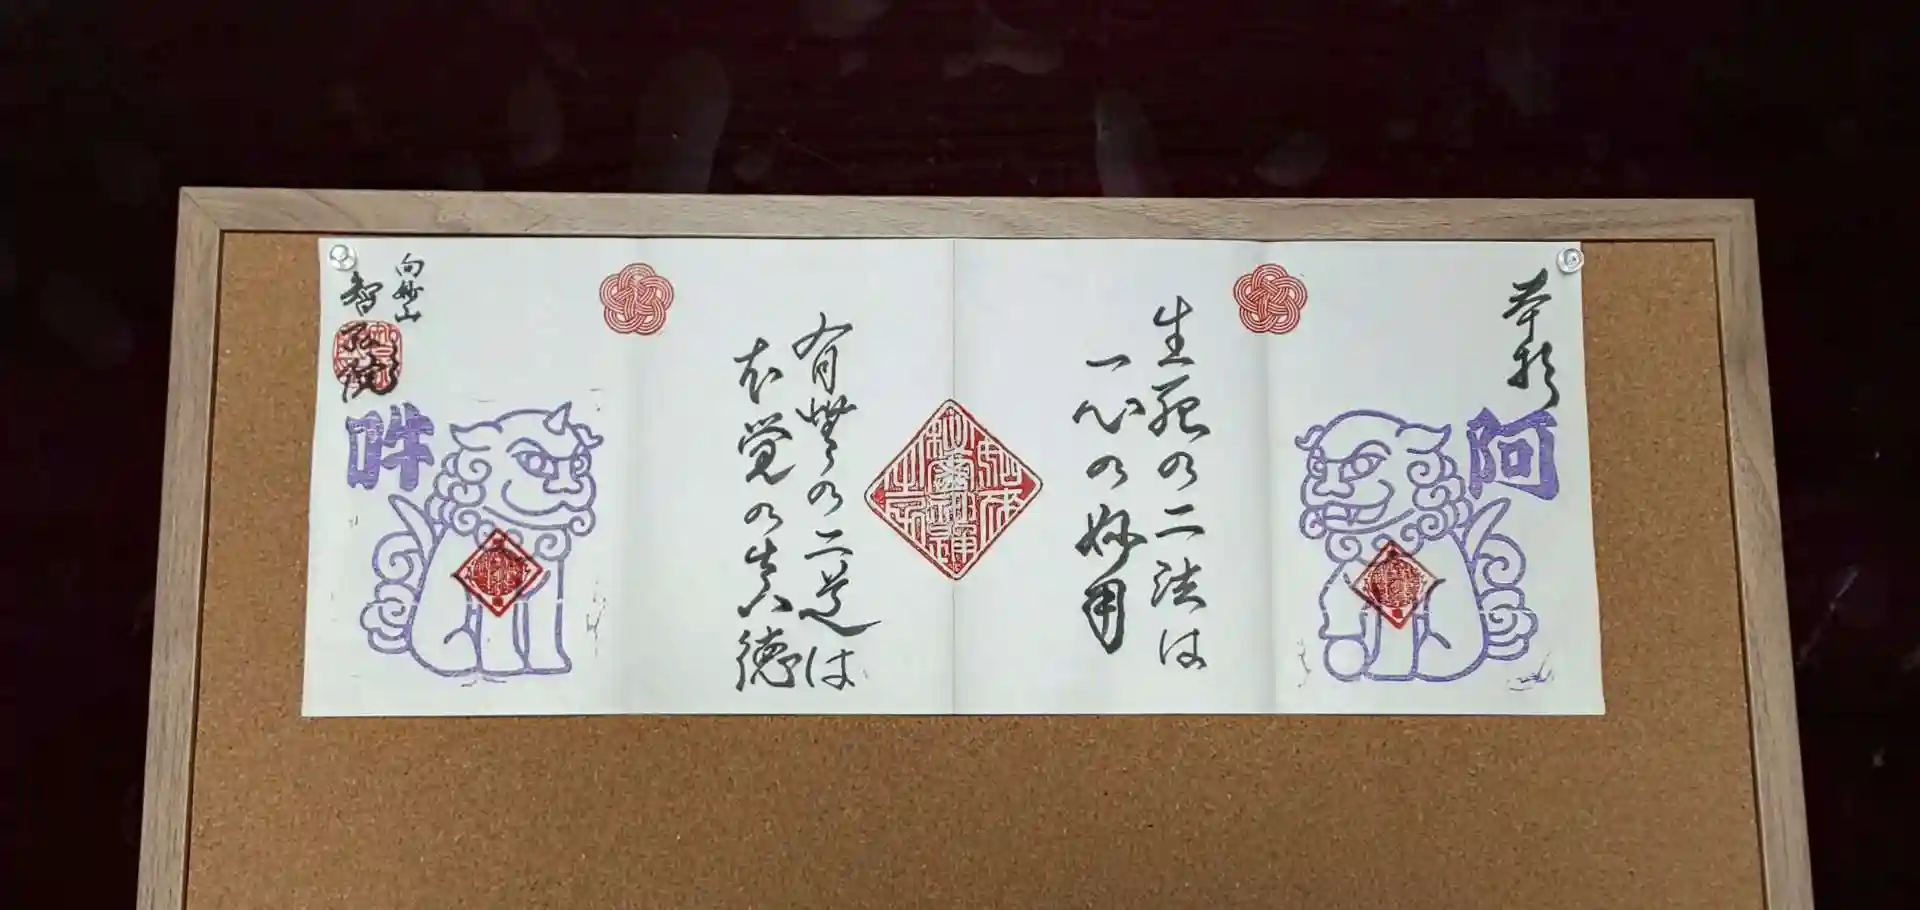 奉拝
阿
生死の二法は
一心の妙用
有無の二道は
本覚の真徳
向妙山
智弘院
吽